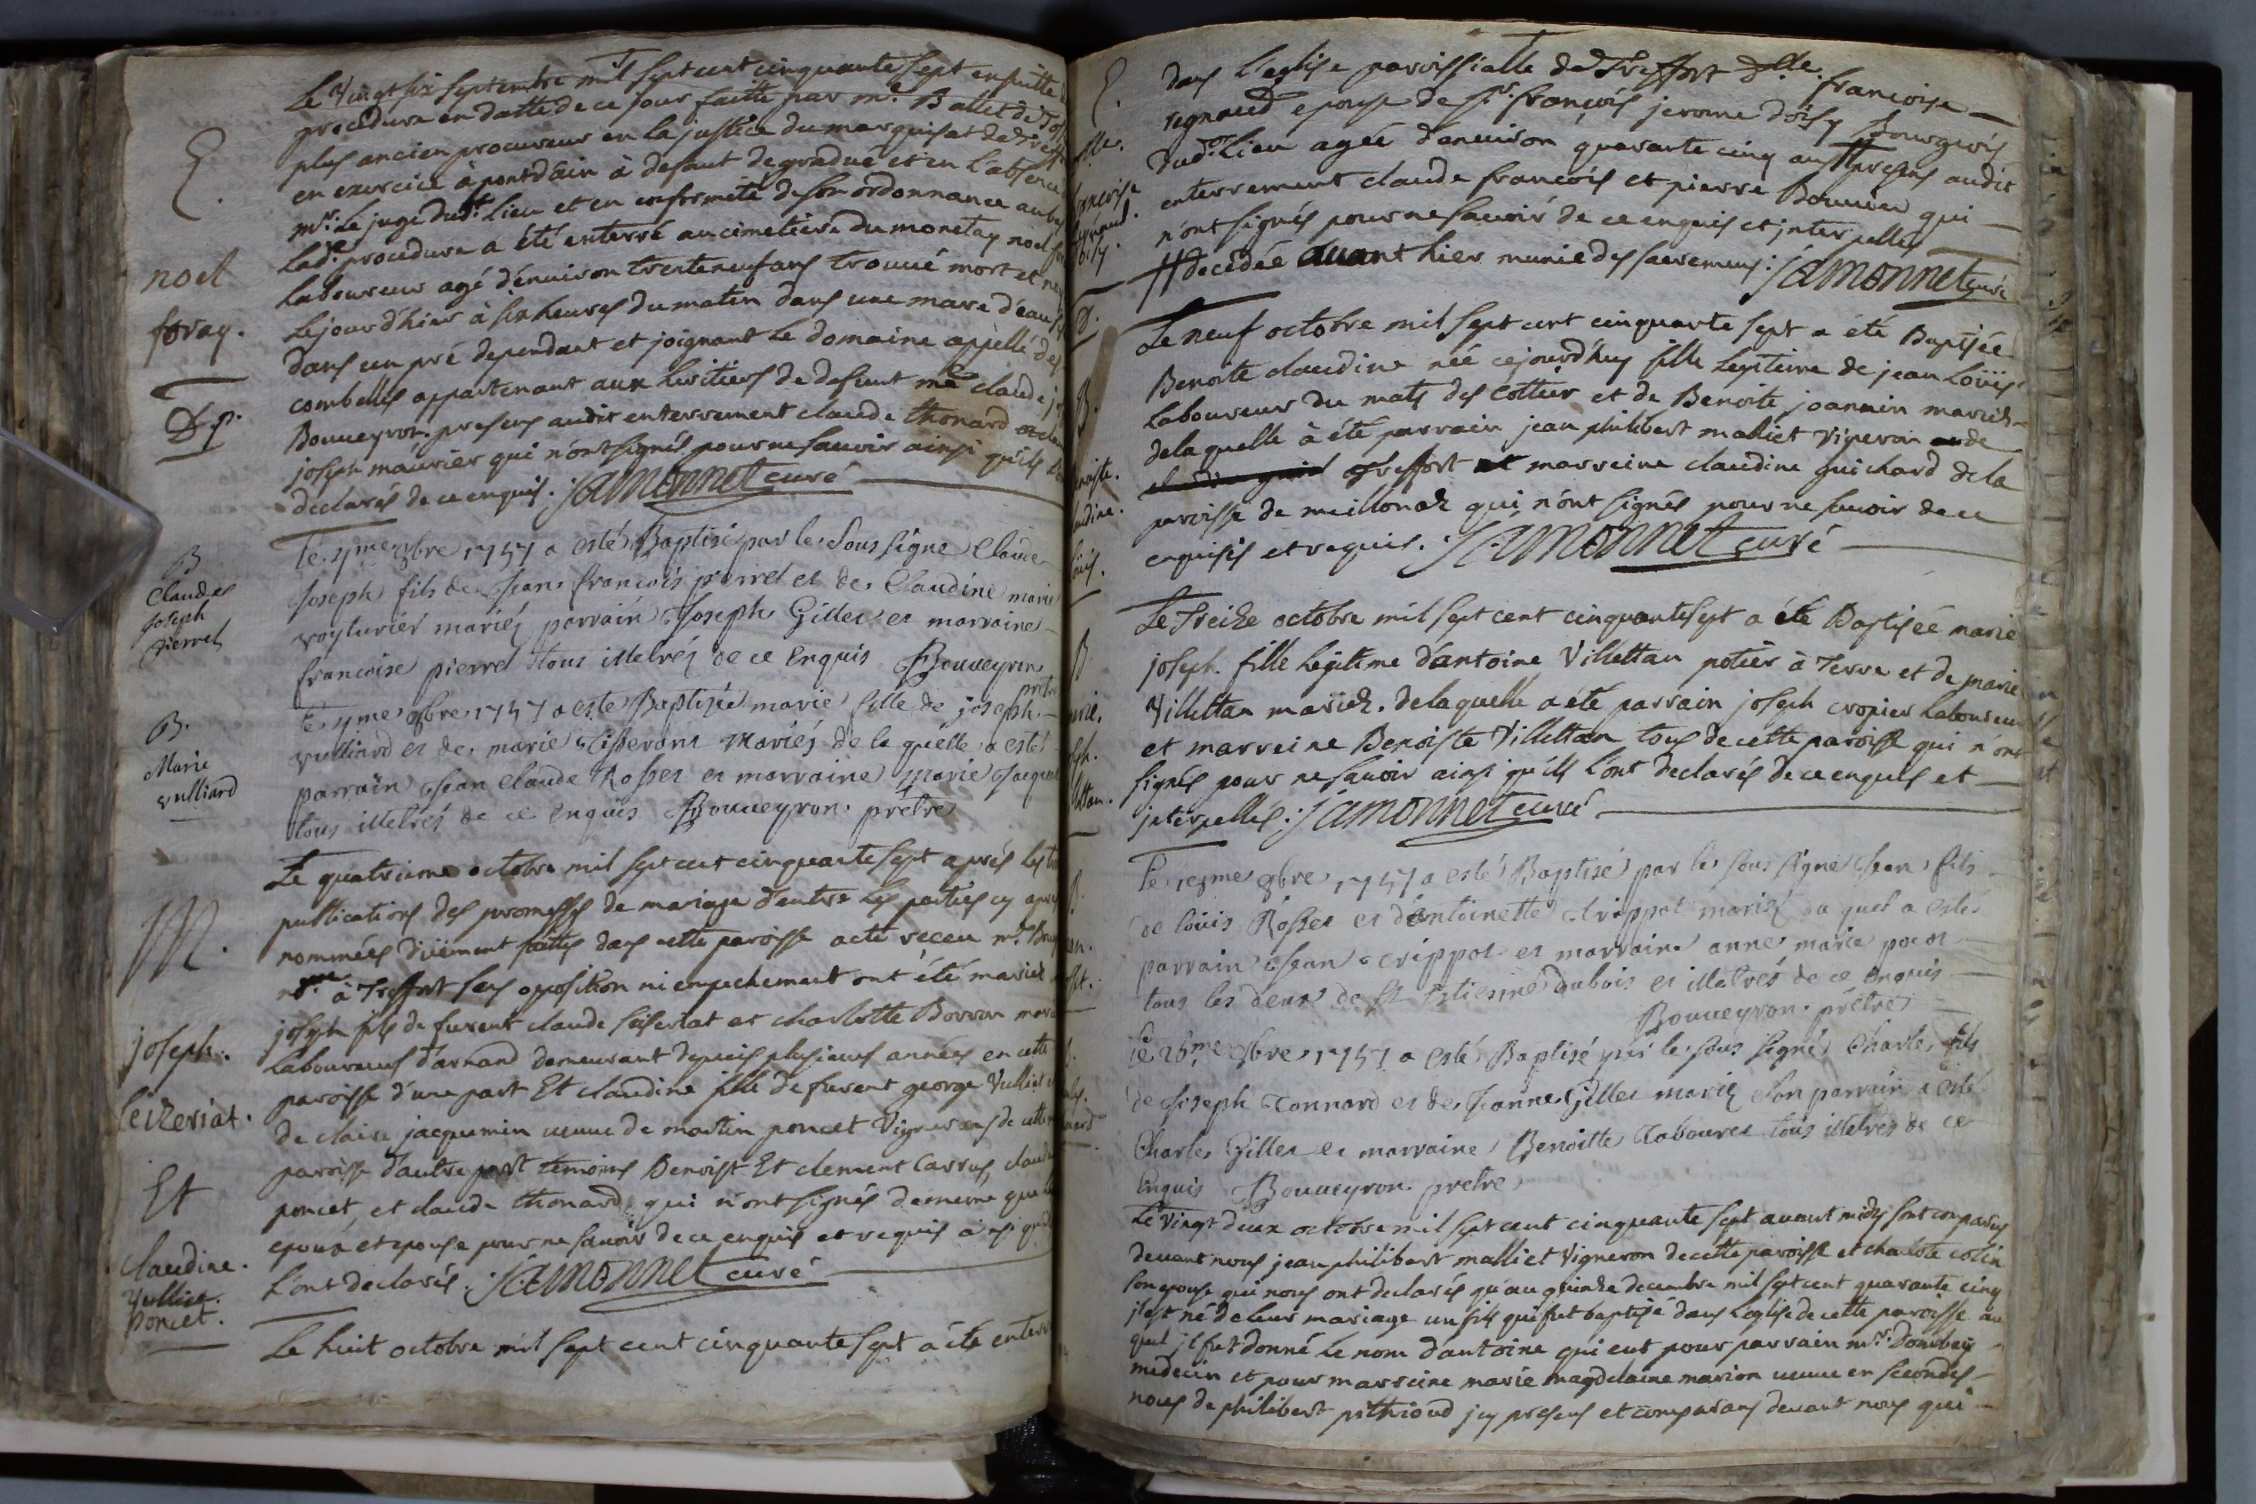 E.
noel
foray.
D p.
Le vingt six septembre mil sept cent cinquante sept en suitte
procedure en datte de ce jour faitte par mr. Ballet de
plus ancien procureur en la justice du marquisat de
en exercice à pontdain à defaut de gradué et en l'absence
mr. Le juge dudt. Lieu et en conformité de son ordonnance au bas
lade. procedure a été enterré au cimetiere du monetay noel
Laboureur agé d'environ trente neuf ans trouvé mort et
Le jour d'hier à six heures du matin dans une mare d'eau
dans un pré dependant et joignant Le domaine appellé des
combelles appartenant aux heritiers de defunt me claude
Bouveyron. presens audit enterrement claude thonard et
joseph maurier qui n'ont signés pour ne savoir ainsi qu'ils
declarés de ce enquis. Jamonnet curé
B
Claude
Joseph
Pierrel
Le 4me 8bre 1757 a esté Baptisé par le sous signé Claude
Joseph fils de Jean françois pierrel et de Claudine marie
voyturier mariéz parrain Joseph Gillet et marraine
francoise pierrel tous illetréz de ce enquis Bouveyron
pretre
B.
Marie
vulliard
Le 4me 8bre 1757 a esté Baptisée marie fille de joseph
vulliard et de marie Tisserant Mariés de la quelle a esté
parrain Jean Claude Rosset et marraine Marie
tous illetrés de ce enquis Bouveyron. prêtre
M.
joseph.
seizeriat.
Et
claudine.
vulliet.
Poncet.
Le quatrieme octobre mil sept cent cinquante sept après les
publications des promesses de mariage d'entre Les parties cy après
nommées düement faittes dans cette paroisse acte receu mr.
nre. à Treffort sans opposition ni empechement ont été mariéz
joseph fils de furent claude seiseriat et charlotte Borron
Laboureurs d'arnand demeurant depuis plusieurs années en cette
paroisse d'une part Et claudine fille de furent george Vulliet
de claire jacquemin veuve de martin poncet Vignerons de cette
paroisse d'autre part temoins Benoist Et clement Carrus, claude
poncet, et claude thonard qui n'ont signés de meme que
epoux et epouse pour ne savoir de ce enquis et requis ainsi qu'ils
L'ont declarés. Jamonnet curé
Le huit octobre mil sept cent cinquante sept a été enterré
E.
dans l'eglise paroissialle de Treffort Dlle. francoise
regnaud epouse de sr. françois jerome doisy Bourgeois
dudt. Lieu agée d'environ quarante cinq ans // presens audit
enterrement claude francois et pierre Bouvier qui
n'ont signés pour ne savoir de ce enquis et interpellés
// decedée avant hier munie des sacremens. Jamonnet curé
B.
Le neuf octobre mil sept cent cinquante sept a été Baptisée
Benoite claudine née cejourd'huy fille legitime de jean Loüis
Laboureur du mats des Cottier et de Benoite joannin mariéz
de la quelle à été parrain jean philibert malliet Vigneron de
Treffort et marreine claudine guichard de la
paroisse de meillonaz qui n'ont signés pour ne savoir de ce
enquisis et requis. Jamonnet curé
B
Le Treize octobre mil sept cent cinquante sept a été Baptisée marie
joseph. fille legitime d'antoine Villettan potier à Terre et de marie
Villettan mariéz. de laquelle a été parrain joseph cropier Laboureur
et marreine Benoiste Villettan tous de cette paroisse qui n'ont
signés pour ne savoir ainsi qu'ils L'ont declarés de ce enquis et
interpellés. Jamonnet curé
Le 8bre 1757 a esté Baptisé par le sous signé Jean fils
de Louis Rosset et d'Antoinette Crippot mariéz du quel a esté
parrain Jean Crippot et marraine anne marie
tous les deux de St Estienne dubois et illetrés de ce enquis
Bouveyron. prêtre
Le 8bre 1757 a esté Baptisé par le sous signé Charle fils
de Joseph Tonnard et de Jeanne Gillet mariéz son parrain a esté
Charle Gillet et marraine Benoitte Tabouret tous illetrés de ce
Enquis Bouveyron. pretre
Le Vingt deux octobre mil sept cent cinquante sept avant midy sont comparus
devant nous jean philibert malliet Vigneron de cette paroisse et charlote colin
son epouse qui nous ont declarés qu'au quinze decembre mil sept cent quarante cinq
il est né de leur mariage un fils qui fut baptisé dans l'eglise de cette paroisse au
quel il fut donné Le nom d'antoine qui eut pour parrain mr. Dombey
medecin et pour marreine marie magdelaine marion veuve en secondes
noces de philibert pithioud icy presens et comparans devant nous qui